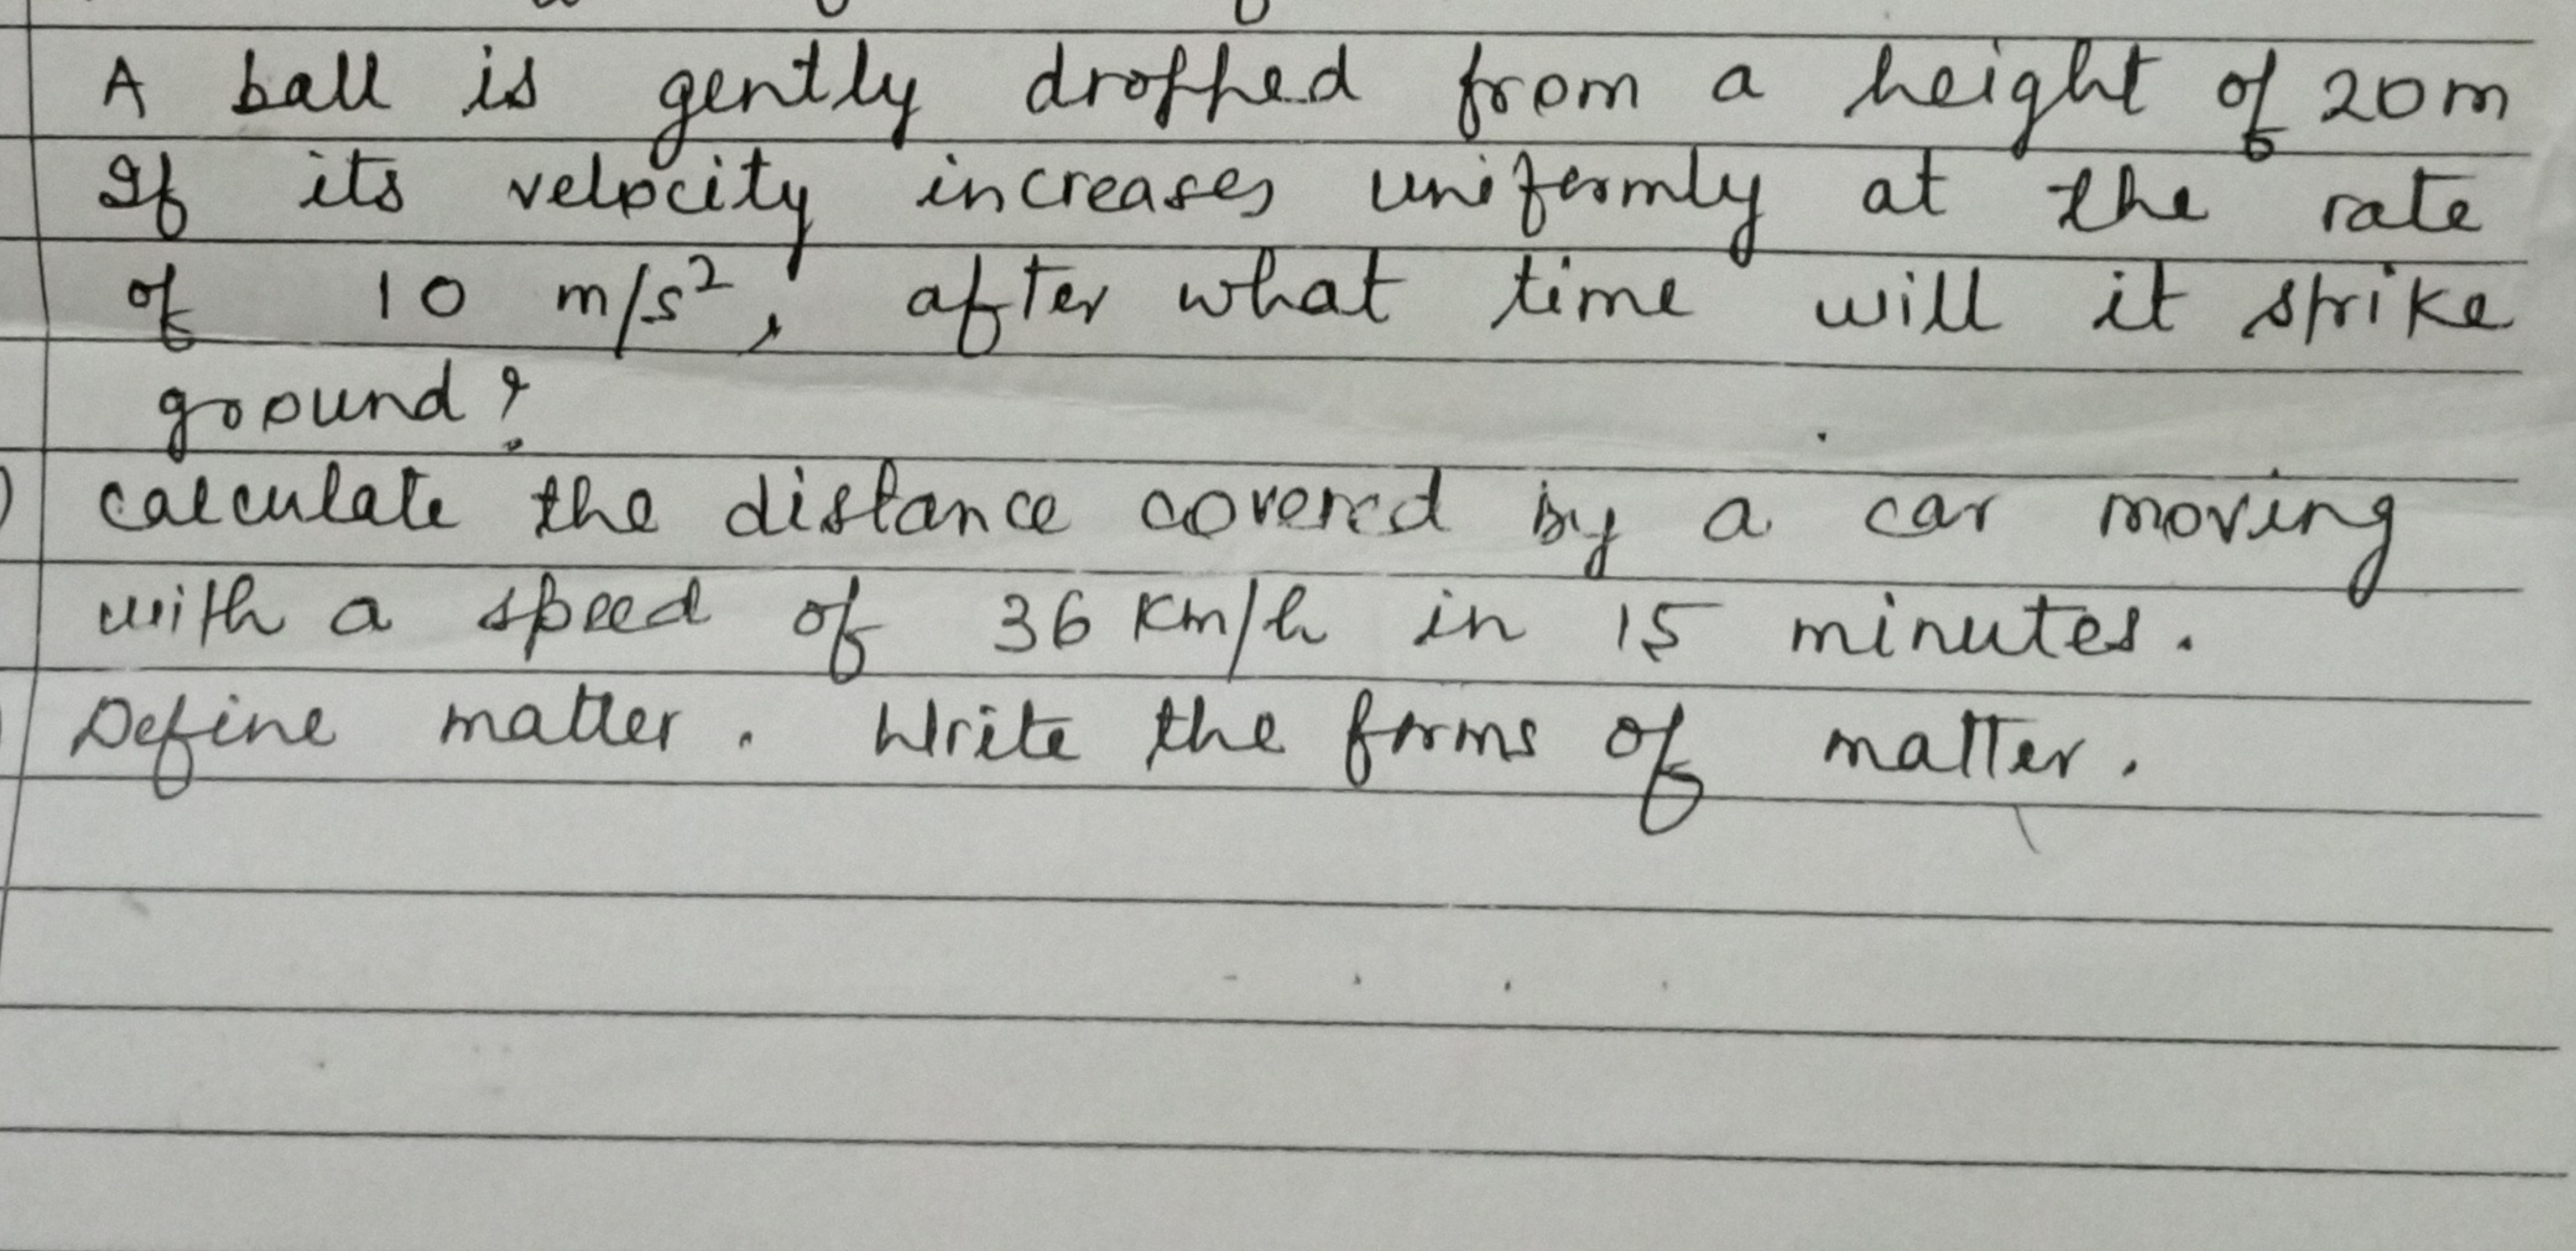 A ball is gently dropped from a height of 20m
If its velocity increases uniformly at the rate
of 10 m/s², after what time will it strike
ground?
) calculate the distance covered by a car moving
with a speed of 36 Km/h in 15 minutes.
Define matter. Write the forms of matter.